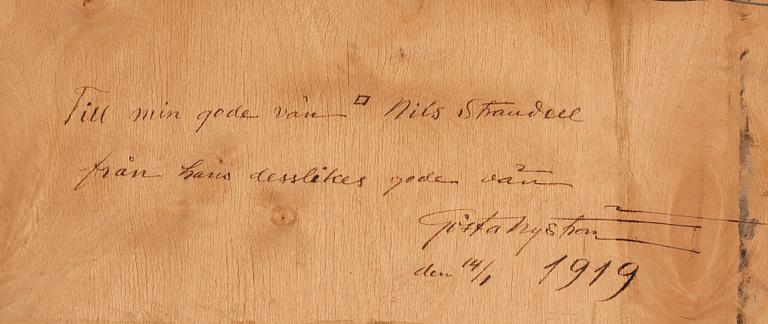 Till min gode vän Nils Strandell
från hans desslikes gode vän
Gösta Nyström
den 14/1 1919